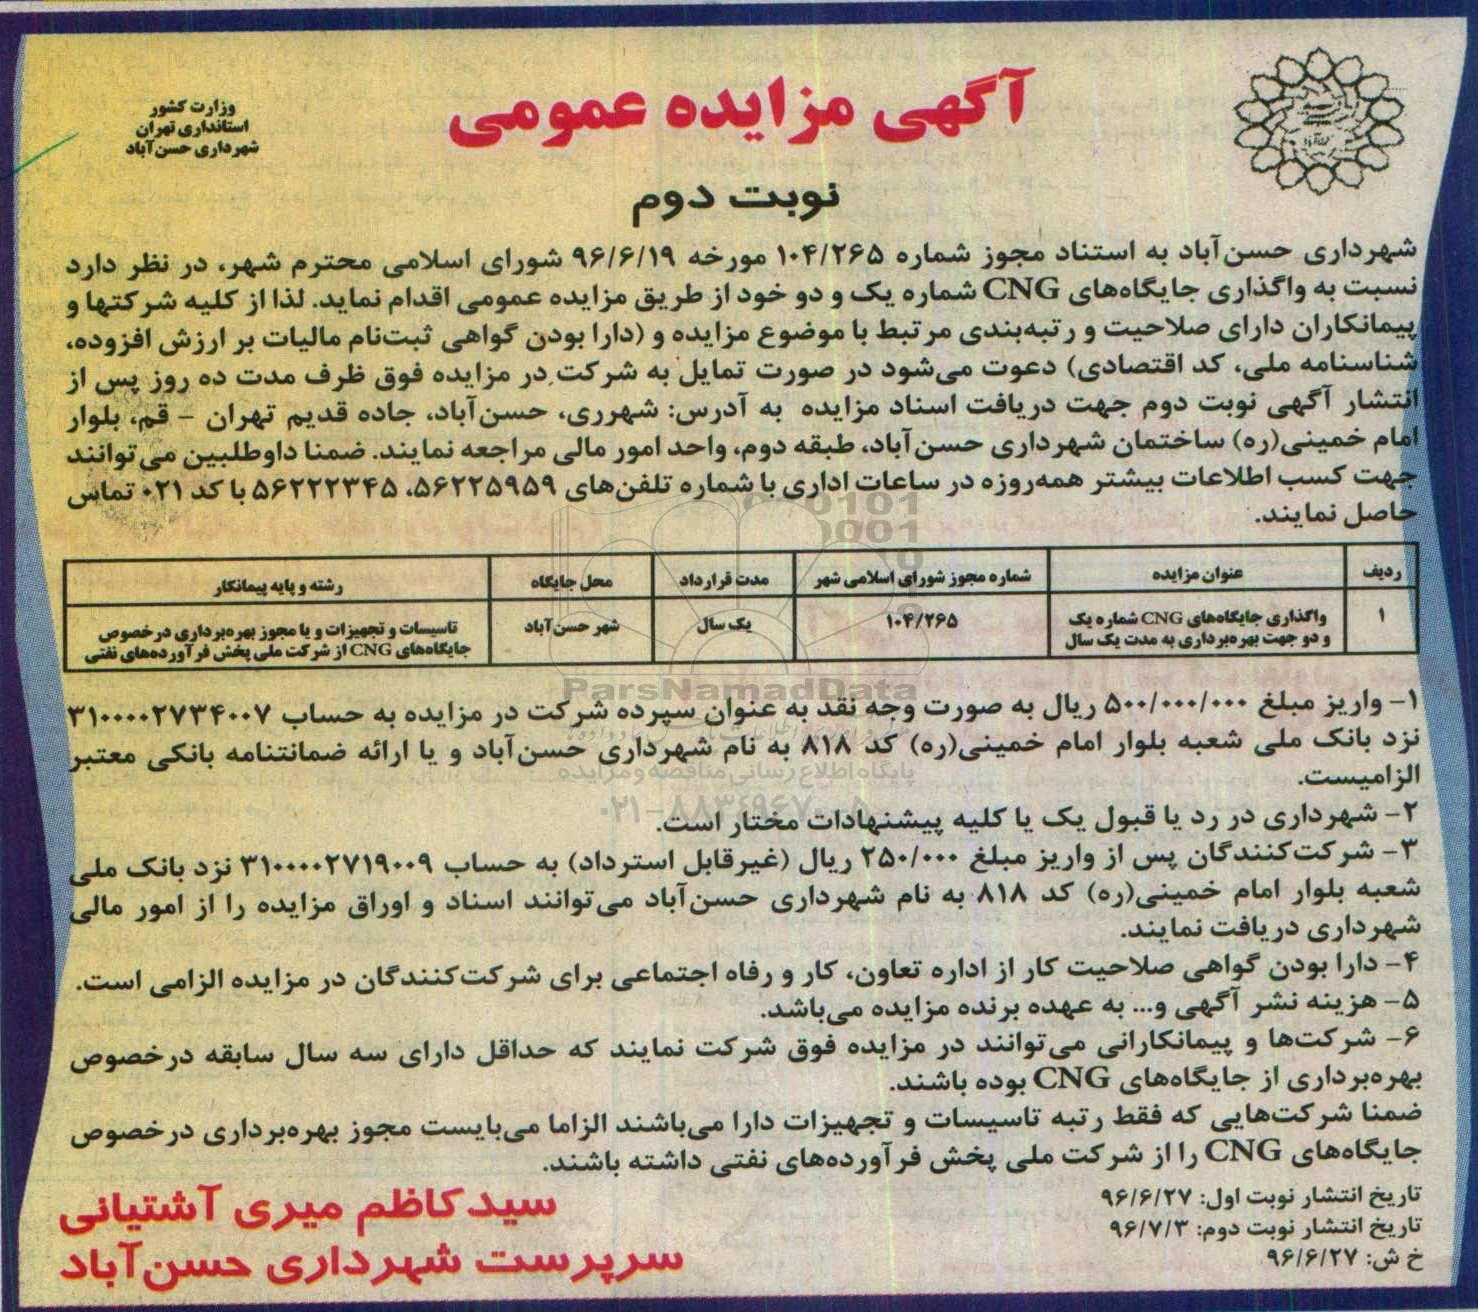 وزارت کشور
استانداری تهران
شهرداری حسن‌آباد
آگهی مزایده عمومی
نوبت دوم
شهرداری حسن‌آباد به استناد مجوز شماره ۱۰۴/۲۶۵ مورخه ۹۶/۶/۱۹ شورای اسلامی محترم شهر، در نظر دارد
نسبت به واگذاری جایگاه‌های CNG شماره یک و دو خود از طریق مزایده عمومی اقدام نماید. لذا از کلیه شرکتها و
پیمانکاران دارای صلاحیت و رتبه‌بندی مرتبط با موضوع مزایده و (دارا بودن گواهی ثبت‌نام مالیات بر ارزش افزوده،
شناسنامه ملی، کد اقتصادی) دعوت می‌شود در صورت تمایل به شرکت در مزایده فوق ظرف مدت ده روز پس از
انتشار آگهی نوبت دوم جهت دریافت اسناد مزایده به آدرس: شهرری، حسن‌آباد، جاده قدیم تهران - قم، بلوار
امام خمینی(ره) ساختمان شهرداری حسن‌آباد، طبقه دوم، واحد امور مالی مراجعه نمایند. ضمنا داوطلبین می‌توانند
جهت کسب اطلاعات بیشتر همه‌روزه در ساعات اداری با شماره تلفن‌های ۵۶۲۲۵۹۵۹، ۵۶۲۲۲۳۴۵ با کد ۰۲۱ تماس
حاصل نمایند.
ردیف عنوان مزایده شماره مجوز شورای اسلامی شهر مدت قرارداد محل جایگاه رشته و پایه پیمانکار
۱ واگذاری جایگاه‌های CNG شماره یک ۱۰۴/۲۶۵ یک سال شهر حسن‌آباد تاسیسات و تجهیزات و یا مجوز بهره‌برداری درخصوص
و دو جهت بهره‌برداری به مدت یک سال جایگاه‌های CNG از شرکت ملی پخش فرآورده‌های نفتی
ParsNamadData
پایگاه اطلاع رسانی مناقصه و مزایده
۰۲۱-۸۸۳۴۹۶۷۰-۵
۱- واریز مبلغ ۵۰۰/۰۰۰/۰۰۰ ریال به صورت وجه نقد به عنوان سپرده شرکت در مزایده به حساب ۳۱۰۰۰۰۲۷۳۴۰۰۷
نزد بانک ملی شعبه بلوار امام خمینی(ره) کد ۸۱۸ به نام شهرداری حسن‌آباد و یا ارائه ضمانتنامه بانکی معتبر
الزامیست.
۲- شهرداری در رد یا قبول یک یا کلیه پیشنهادات مختار است.
۳- شرکت‌کنندگان پس از واریز مبلغ ۲۵۰/۰۰۰ ریال (غیرقابل استرداد) به حساب ۳۱۰۰۰۰۲۷۱۹۰۰۹ نزد بانک ملی
شعبه بلوار امام خمینی(ره) کد ۸۱۸ به نام شهرداری حسن‌آباد می‌توانند اسناد و اوراق مزایده را از امور مالی
شهرداری دریافت نمایند.
۴- دارا بودن گواهی صلاحیت کار از اداره تعاون، کار و رفاه اجتماعی برای شرکت‌کنندگان در مزایده الزامی است.
۵- هزینه نشر آگهی و... به عهده برنده مزایده می‌باشد.
۶- شرکت‌ها و پیمانکارانی می‌توانند در مزایده فوق شرکت نمایند که حداقل دارای سه سال سابقه درخصوص
بهره‌برداری از جایگاه‌های CNG بوده باشند.
ضمنا شرکت‌هایی که فقط رتبه تاسیسات و تجهیزات دارا می‌باشند الزاما می‌بایست مجوز بهره‌برداری درخصوص
جایگاه‌های CNG را از شرکت ملی پخش فرآورده‌های نفتی داشته باشند.
تاریخ انتشار نوبت اول: ۹۶/۶/۲۷
تاریخ انتشار نوبت دوم: ۹۶/۷/۳
خ ش: ۹۶/۶/۲۷
سید کاظم میری آشتیانی
سرپرست شهرداری حسن‌آباد